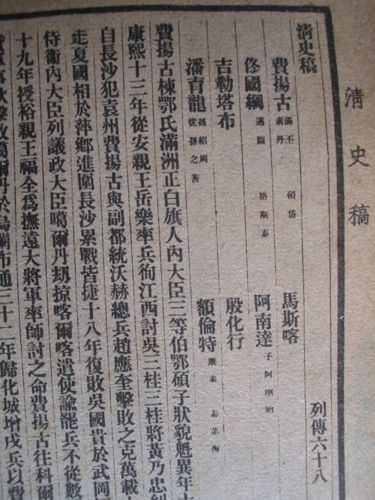 清史稿
清史稿 列傳六十八
費揚古 滿丕 素丹 碩岱 馬斯喀
佟國綱 邁圖 格斯泰 阿南達 子阿喇納
吉勒塔布 殷化行
潘育龍 孫紹周 從孫之善 額倫特 康泰 泰弟海
費揚古棟鄂氏滿洲正白旗人內大臣三等伯鄂碩子狀貌魁異年十
康熙十三年從安親王岳樂率兵徇江西討吳三桂三桂將黃乃忠糾
自長沙犯袁州費揚古與副都統沃赫總兵趙應奎擊敗之克萬載
走夏國相於萍鄉進圍長沙累戰皆捷十八年復敗吳國貴於武岡
侍衛內大臣列議政大臣噶爾丹刼掠喀爾喀遣使諭罷兵不從數
十九年授裕親王福全為撫遠大將軍率師討之命費揚古往科爾
擊敗噶爾丹於烏蘭布通三十二年歸化城增戍兵以費